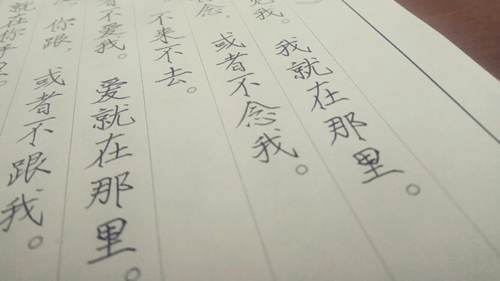 见我。我就在那里。
念，或者不念我。
不来不去。
者不爱我。爱就在那里。
你跟，或者不跟我。
就在你手里。